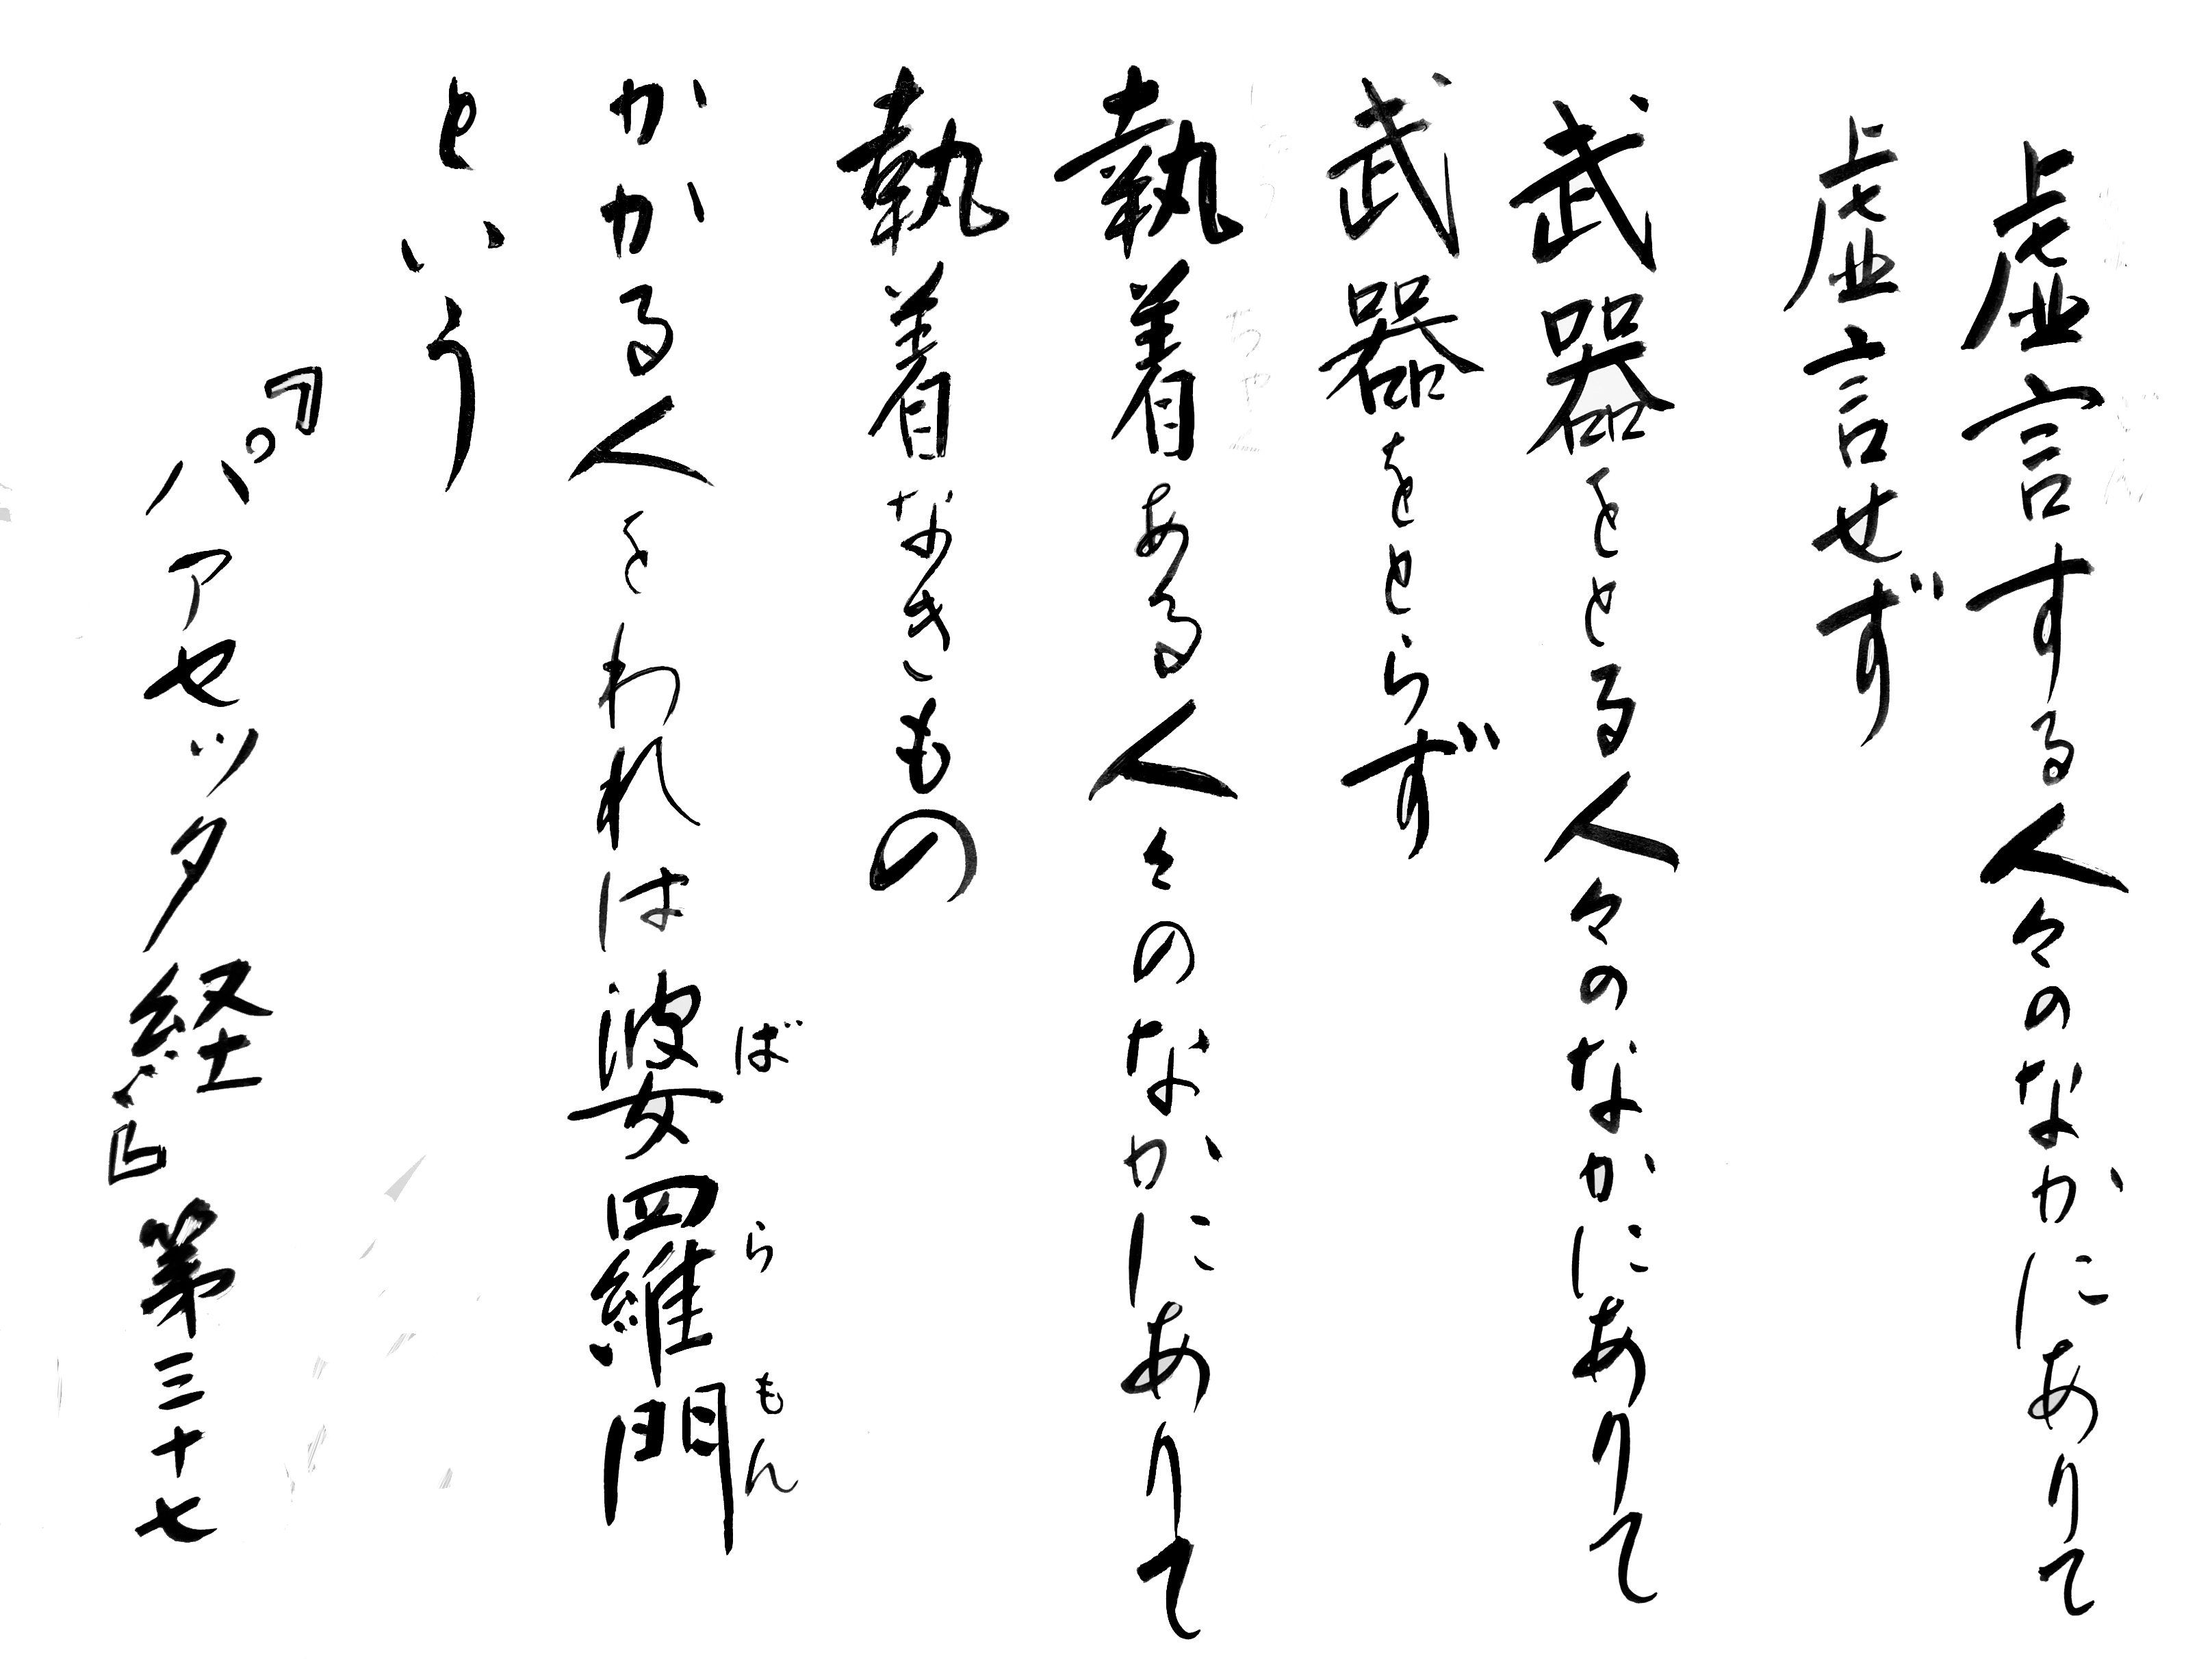 虚言する人々のなかにありて
虚言せず
武器をとる人々のなかにありて
武器をとらず
執着ある人々のなかにありて
執着なきもの
かかる人をわれは婆羅門
ばらもん
という
『パアセッタ経』第三十七